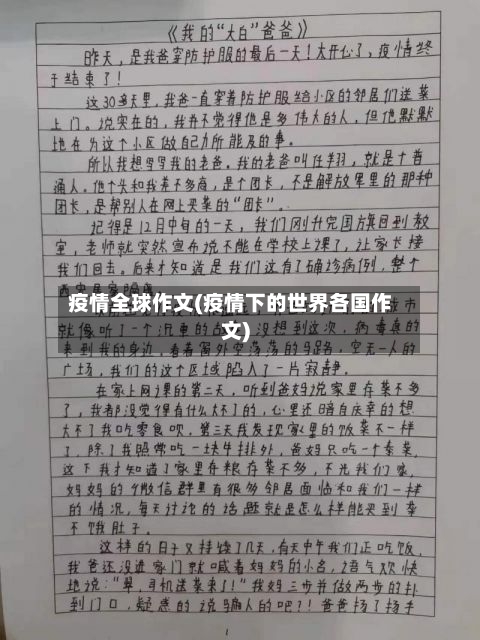 《我的“大白”爸爸》
昨天，是我爸穿防护服的最后一天！太开心了，疫情终
于结束了！
这30多天里，我爸一直穿着防护服给小区的邻居们送菜
上门。说实在的，我并不觉得他是多伟大的人，但他默默
地在为这个小区做自己力所能及的事。
所以我想写写我的老爸。我的老爸叫任翔，就是个普
通人。他个头和我差不多高，是个团长，不是解放军里的那种
团长，是帮别人在网上买菜的“团长”。
记得是12月中旬的一天，我们刚升完国旗回到教
室，老师就突然宣布说不能在学校上课了，让家长接
我们回去。后来才知道是我们这有了确诊病例，整个
疫情全球作文(疫情下的世界各国作
文)
就像听了一个沉重的
来到我的身边，看着窗外空荡荡的马路，空无一人的
广场，我们的这个区域陷入了一片寂静。
在家上网课的第二天，听到爸妈说家里存菜不多
了，我都没觉得有什么大不了的，心里还暗自庆幸的想
大不了我吃零食呗，第三天我发现家里的饭菜不一样
了，除了我照常吃一块牛排外，爸妈只吃一个素菜，
这下我才知道了家里存粮存菜不多，不光我们家，
妈妈的个微信群里有很多邻居面临和我们一样
的情况，每天讨论的话题就是怎么样能买到菜
不饿肚子。
这样的日子又持续了几天，有天中午我们正吃饭，
我爸还没进家门就喊着妈妈的小名，语气欢快
地说：“翠，司机送菜来了！”我妈三步并做两步的扑
到门口，疑惑的说骗人的吧？！爸爸扬了扬手
1